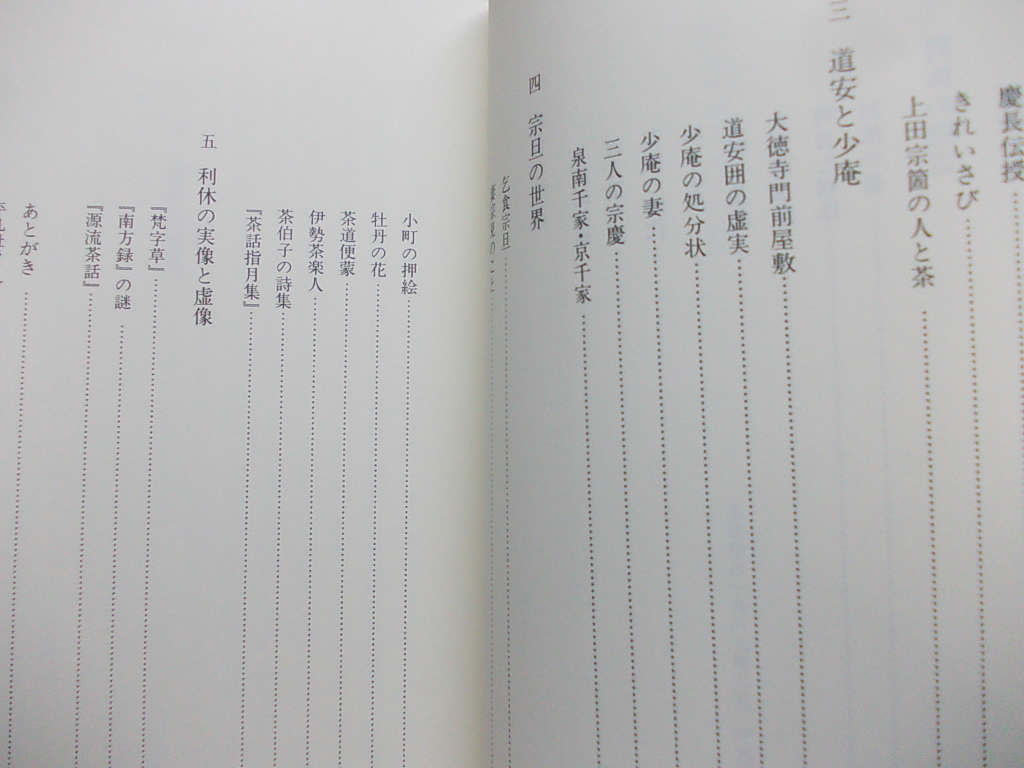 慶長伝授
きれいさび
上田宗箇の人と茶
三 道安と少庵
大徳寺門前屋敷
道安囲の虚実
少庵の処分状
少庵の妻
三人の宗慶
泉南千家・京千家
四 宗旦の世界
乞食宗旦
小町の押絵
牡丹の花
茶道便蒙
伊勢茶楽人
茶伯子の詩集
『茶話指月集』
五 利休の実像と虚像
『梵字草』
『南方録』の謎
『源流茶話』
あとがき